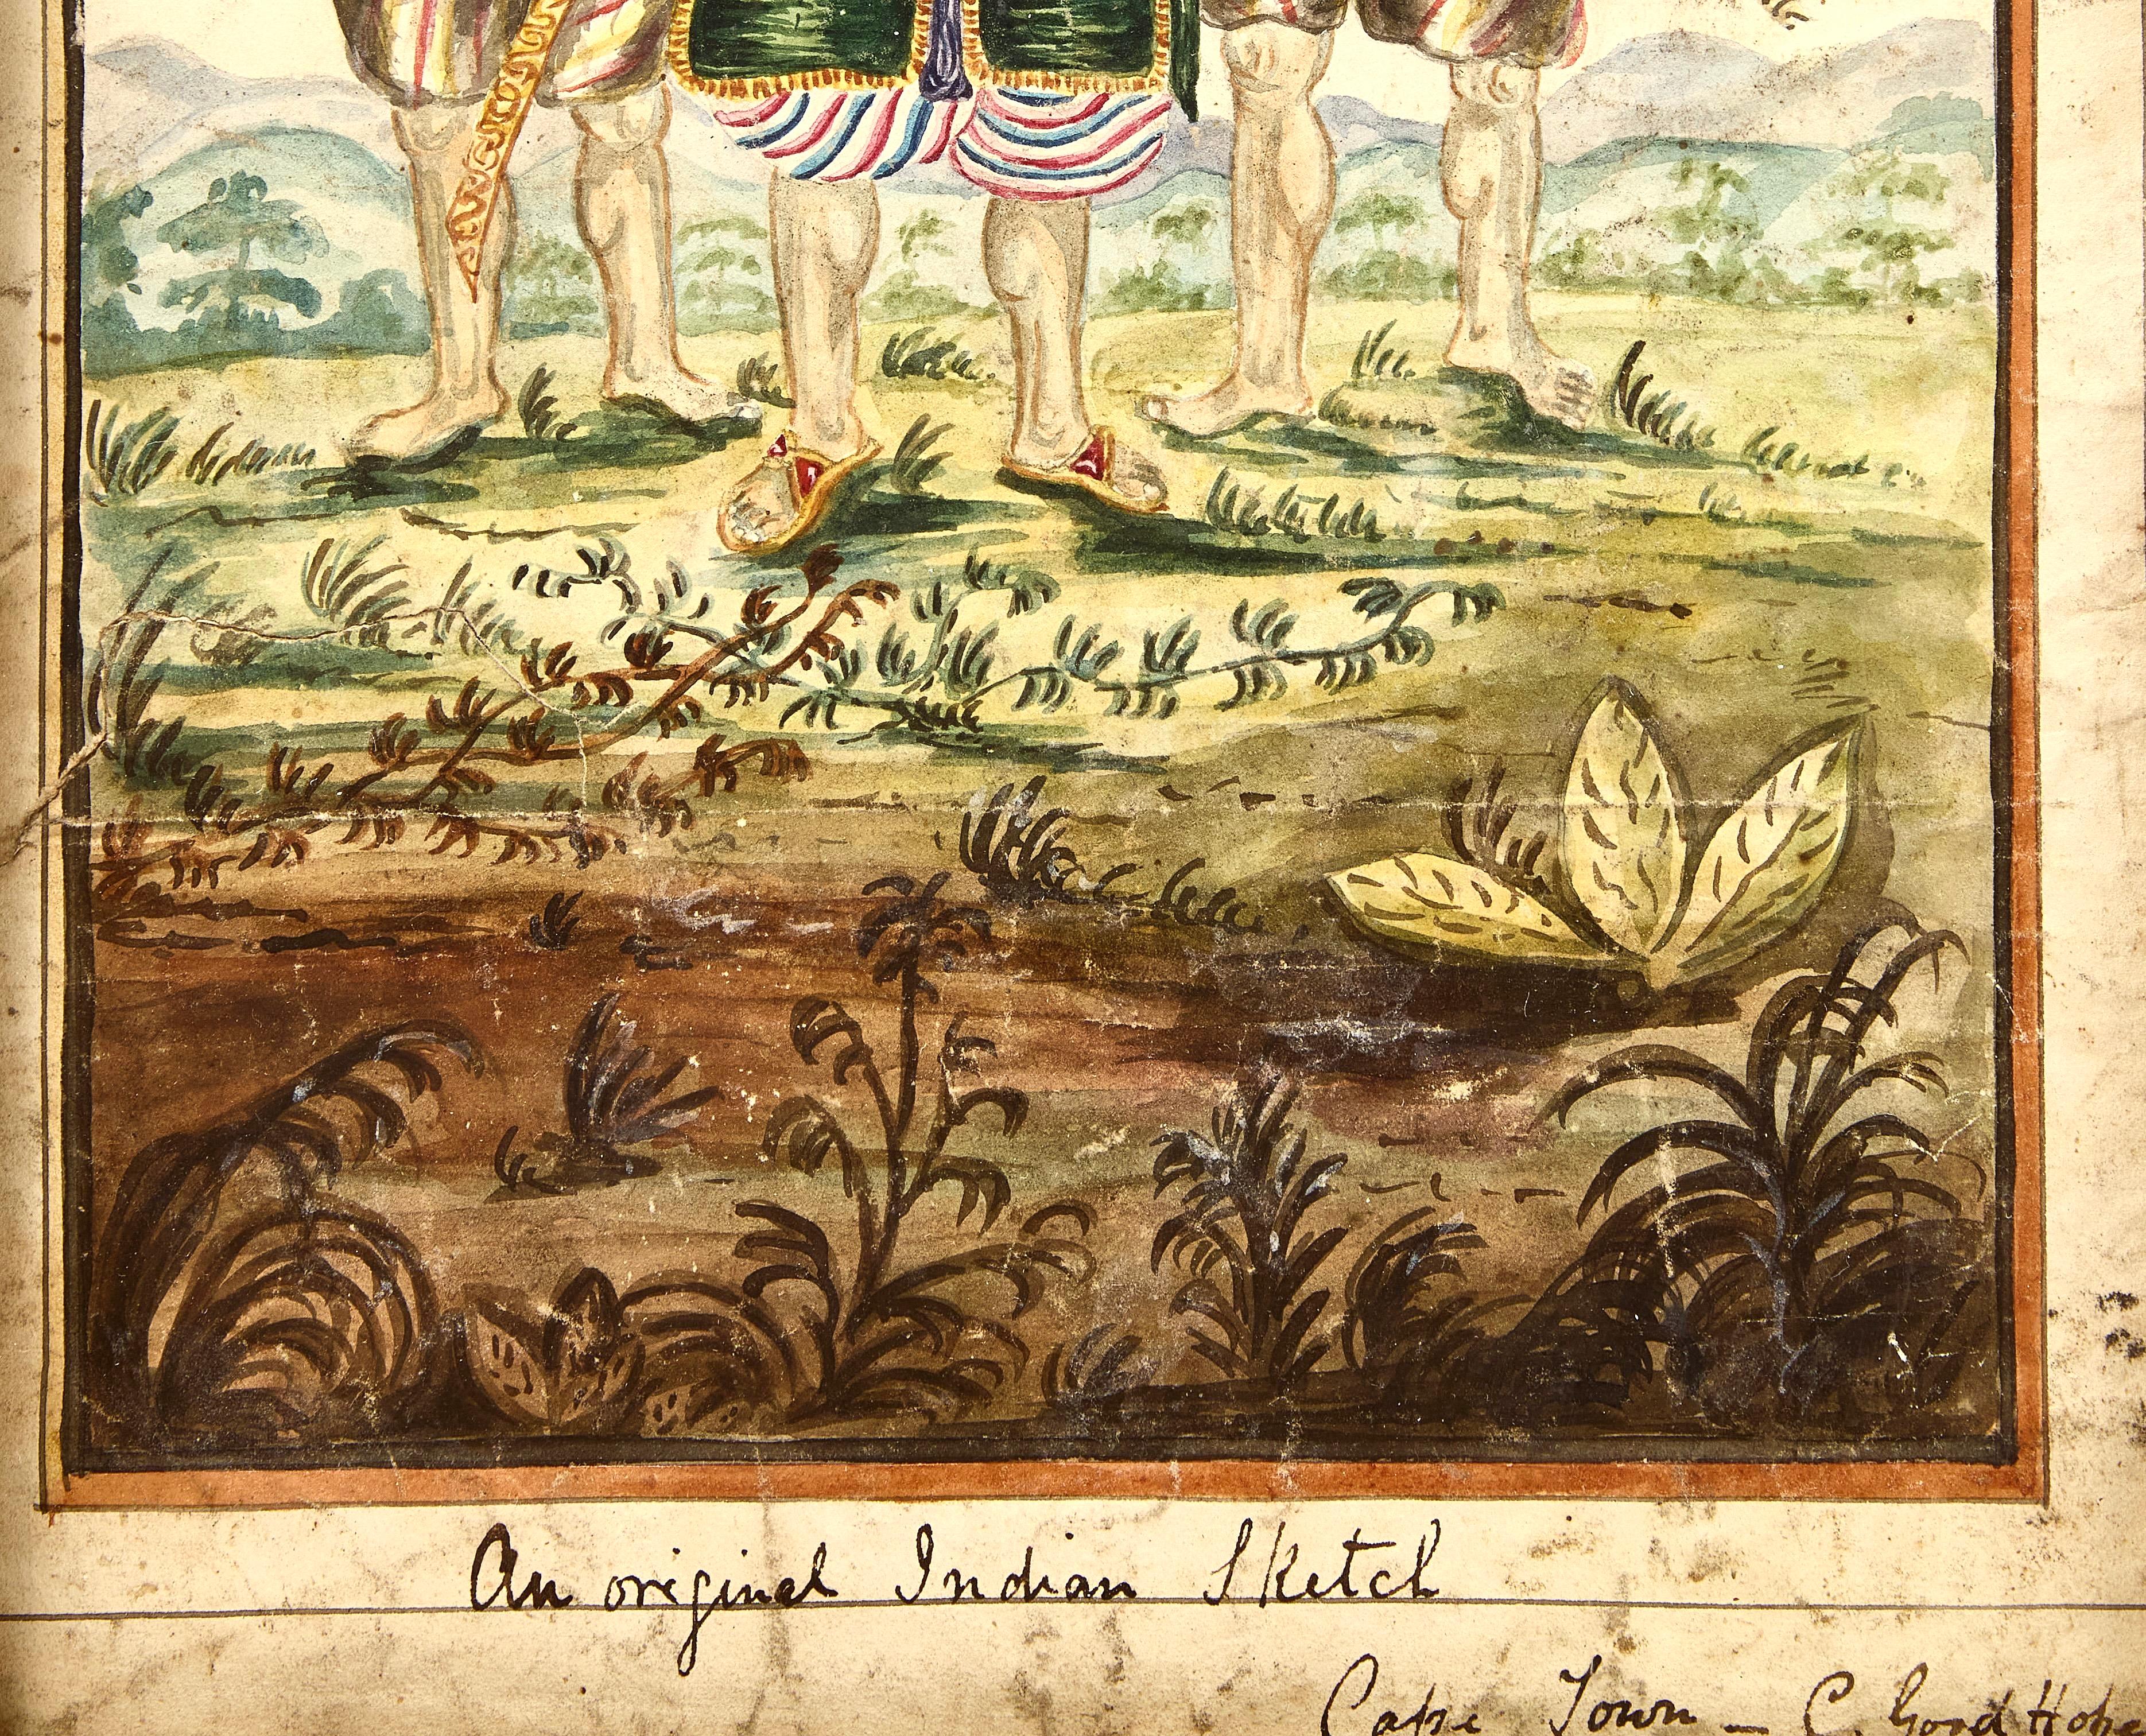 An original Indian Sketch
Cape Town — C. Good Hope